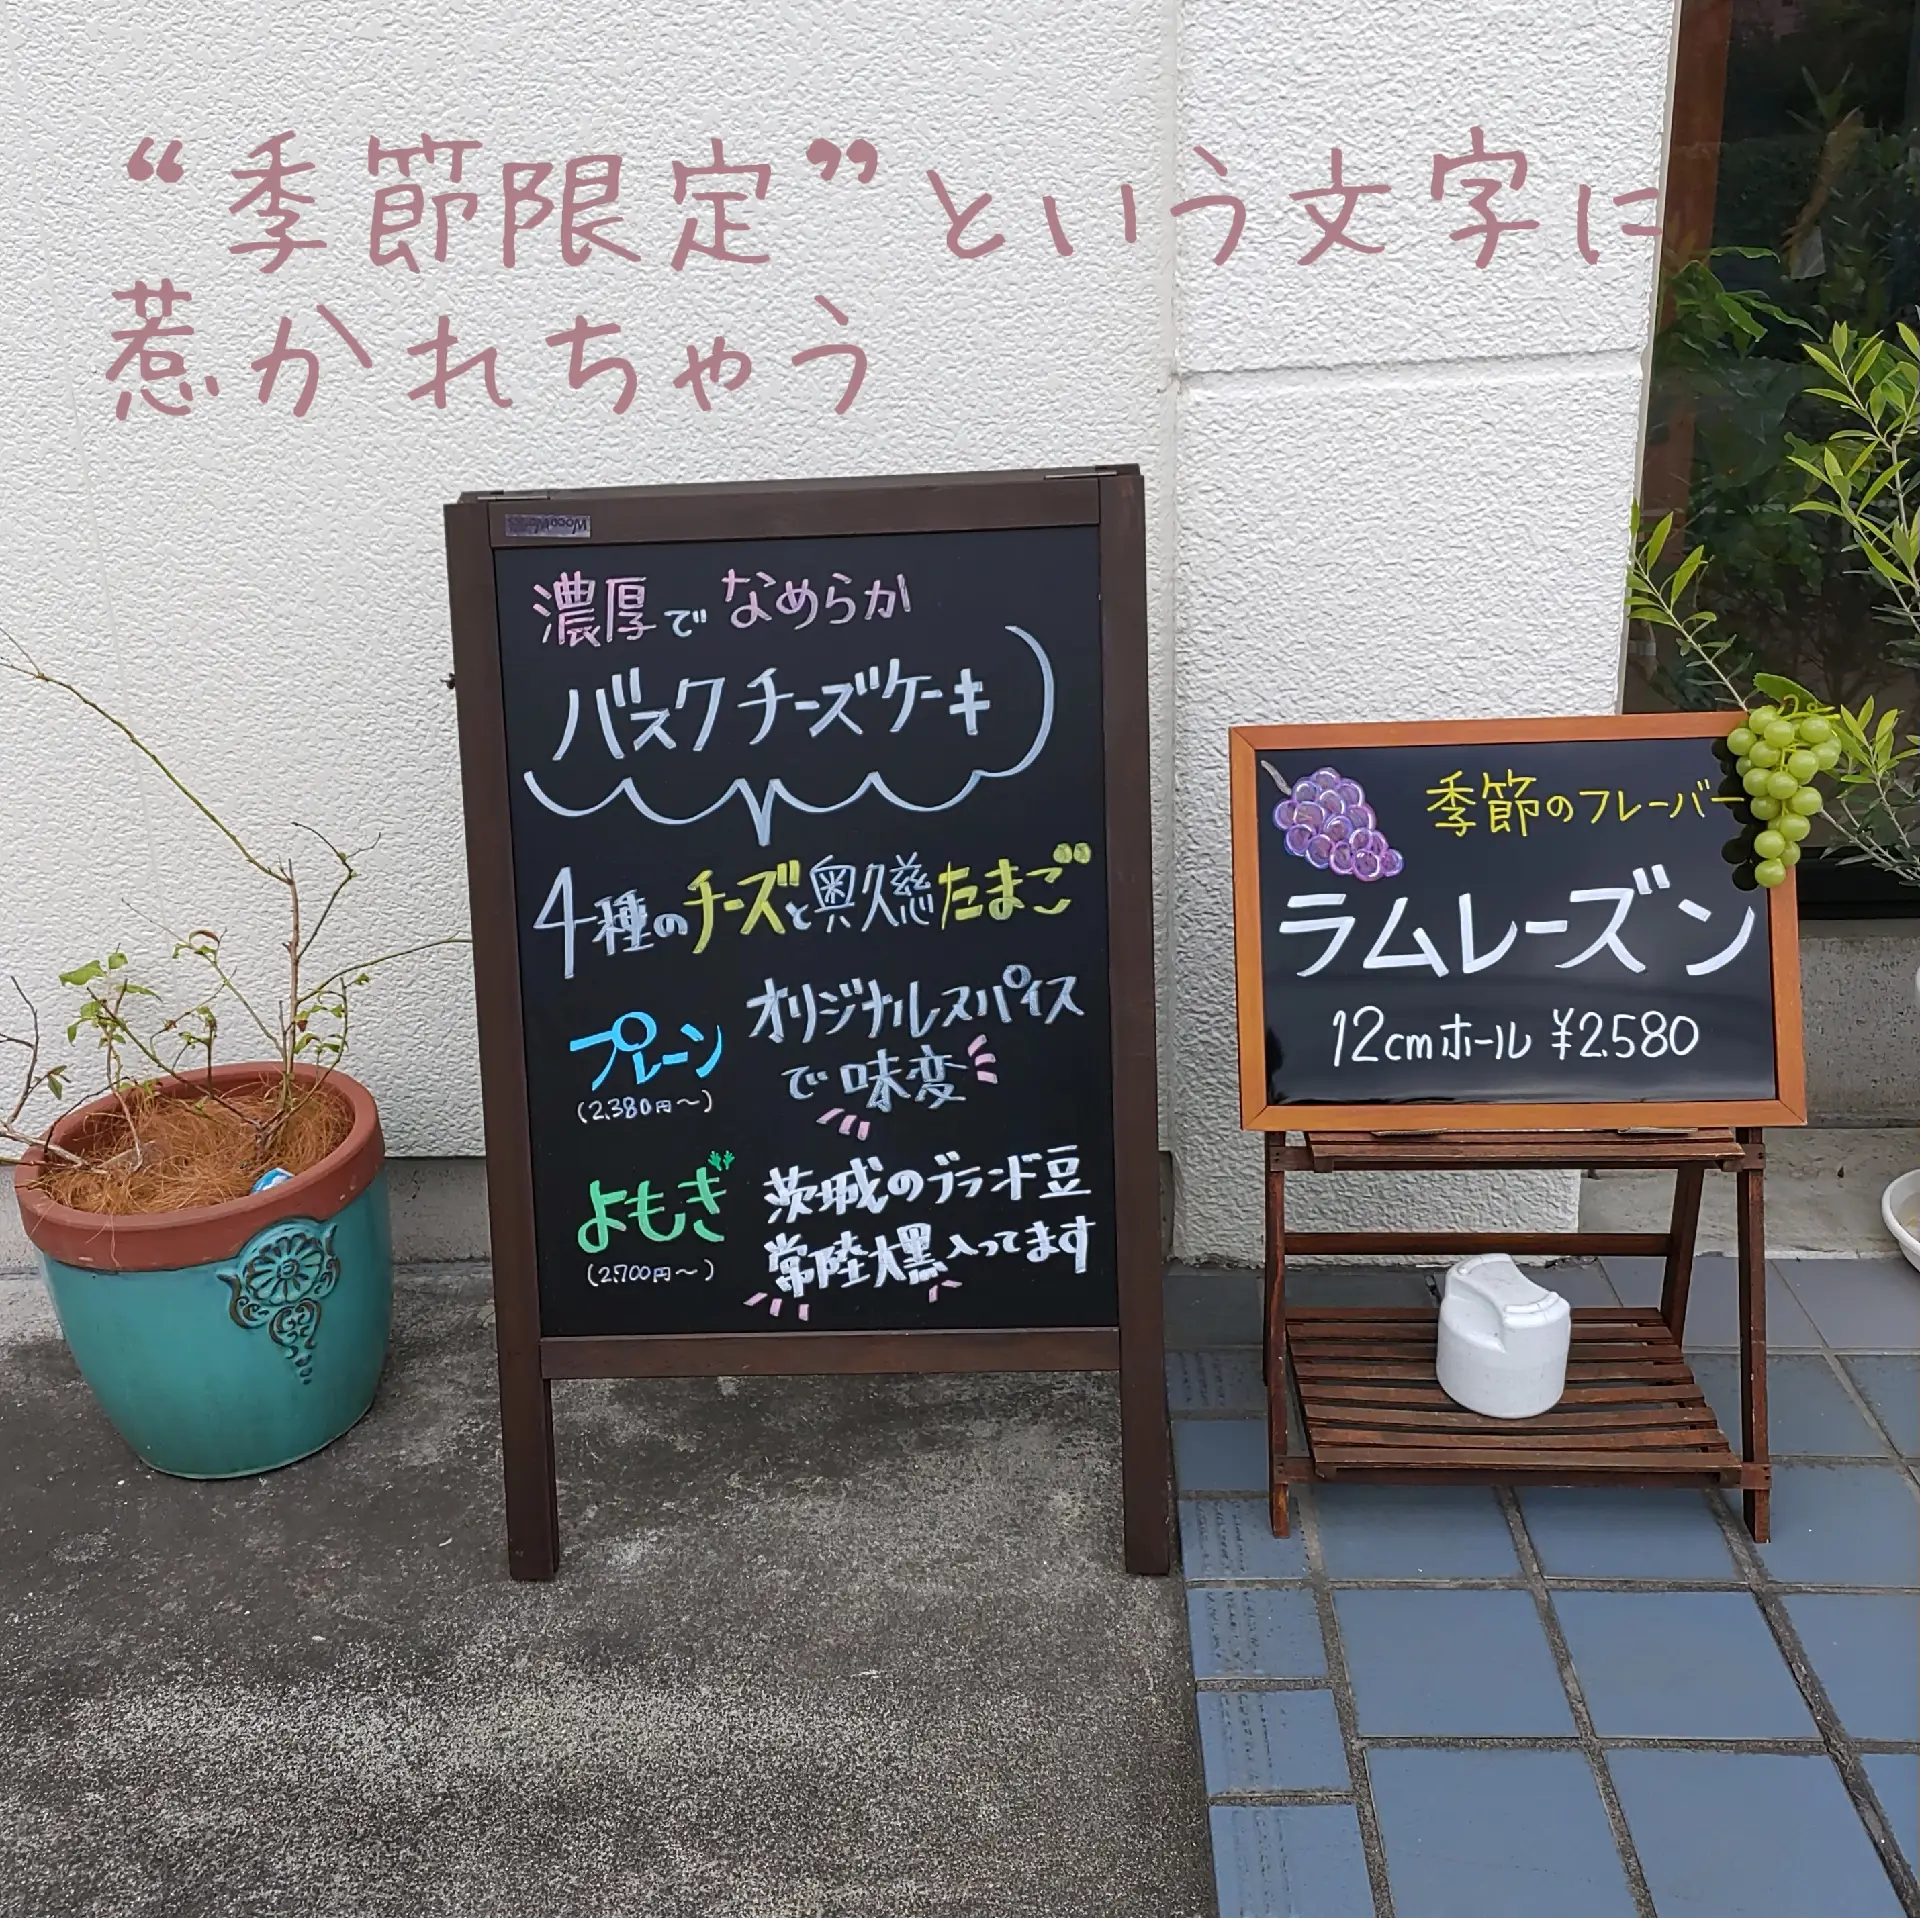 “季節限定”という文字に
惹かれちゃう
濃厚でなめらか
バスクチーズケーキ
4種のチーズと奥久慈たまご
プレーン
(2,380円〜)
オリジナルスパイス
で味変
よもぎ
(2,700円〜)
茨城のブランド豆
常陸大黒入ってます
季節のフレーバー
ラムレーズン
12cmホール ¥2.580